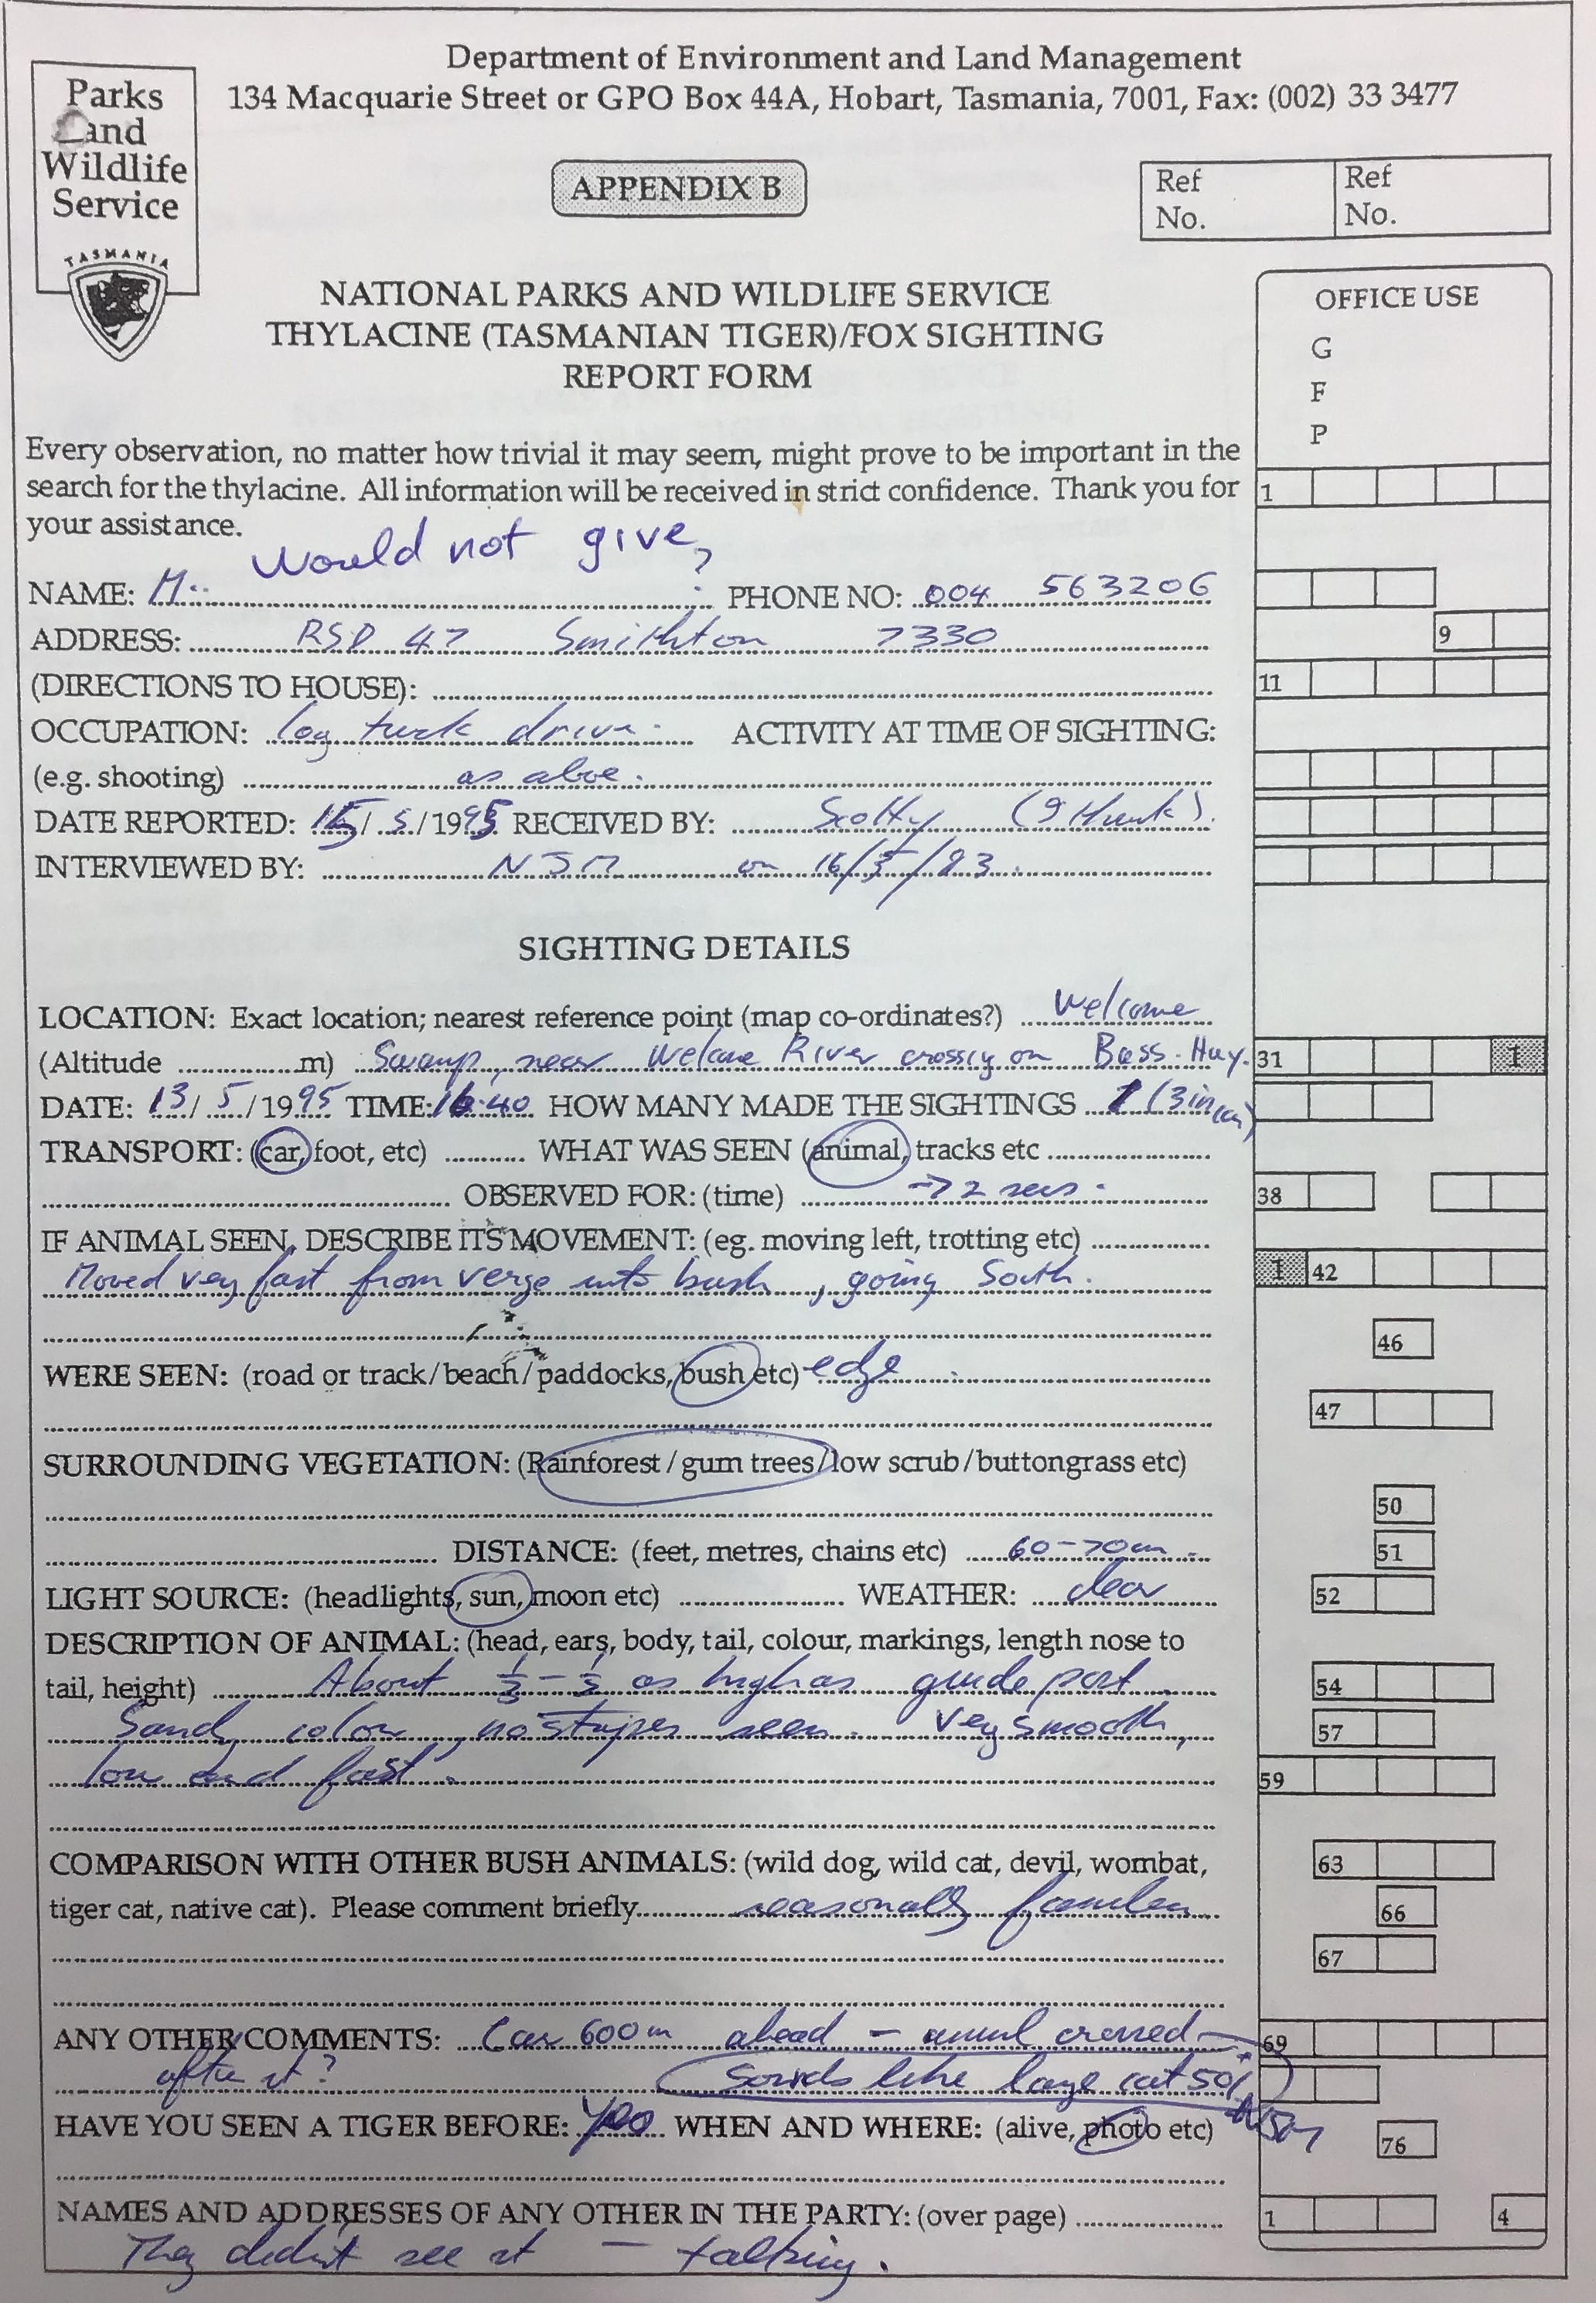 Parks
and
Wildlife
Service
TASMANIA
Department of Environment and Land Management
134 Macquarie Street or GPO Box 44A, Hobart, Tasmania, 7001, Fax: (002) 33 3477
APPENDIX B
Ref No.
Ref No.
NATIONAL PARKS AND WILDLIFE SERVICE
THYLACINE (TASMANIAN TIGER)/FOX SIGHTING
REPORT FORM
OFFICE USE
G
F
P
Every observation, no matter how trivial it may seem, might prove to be important in the
search for the thylacine. All information will be received in strict confidence. Thank you for 1
your assistance.
would not give,
NAME: M.. PHONE NO: 004 563206
ADDRESS: RSD 47 Smithton 7330 9
(DIRECTIONS TO HOUSE): 11
OCCUPATION: log truck driver. ACTIVITY AT TIME OF SIGHTING:
(e.g. shooting) as above.
DATE REPORTED: 15/5/1995 RECEIVED BY: Scotty
INTERVIEWED BY: NJM on 16/5/
SIGHTING DETAILS
LOCATION: Exact location; nearest reference point (map co-ordinates?) Welcome
(Altitude m) Swamp, near Welcome River crossing on Bass Hwy. 31 1
DATE: 13/5/1995 TIME: 16.40 HOW MANY MADE THE SIGHTINGS 1 (3 in car)
TRANSPORT: (car, foot, etc) WHAT WAS SEEN (animal, tracks etc
OBSERVED FOR: (time) → 2 secs. 38
IF ANIMAL SEEN, DESCRIBE ITS MOVEMENT: (eg. moving left, trotting etc)
Moved very fast from verge into bush, going South. 1 42
46
WERE SEEN: (road or track/beach/paddocks, bush etc) edge.
47
SURROUNDING VEGETATION: (Rainforest/gum trees/low scrub/buttongrass etc)
50
DISTANCE: (feet, metres, chains etc) 60-70m. 51
LIGHT SOURCE: (headlights, sun, moon etc) WEATHER: clear 52
DESCRIPTION OF ANIMAL: (head, ears, body, tail, colour, markings, length nose to
tail, height) About as high as guide post. 54
Sandy colour, no stripes seen. Very smooth, 57
low and fast. 59
COMPARISON WITH OTHER BUSH ANIMALS: (wild dog, wild cat, devil, wombat, 63
tiger cat, native cat). Please comment briefly reasonably familiar 66
67
ANY OTHER COMMENTS: Car 600m ahead - animal crossed 69
after it? Sounds like large cat 50%
HAVE YOU SEEN A TIGER BEFORE: Yes WHEN AND WHERE: (alive, photo etc) NJM 76
NAMES AND ADDRESSES OF ANY OTHER IN THE PARTY: (over page) 1 4
They didn't see it - talking.